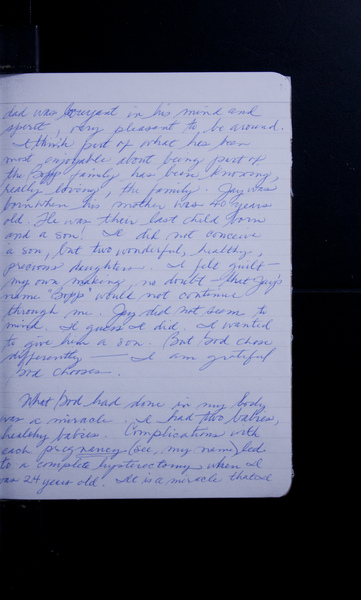 dad was bouyant in his mind and
spirit, very pleasant to be around.
I think part of what has been
most enjoyable about being part of
the Bopp family has been knowing,
really loving, the family. Jay was
born when his mother was 40 years
old. He was their last child born
and a son! I did not conceive
a son, but two wonderful, healthy,
precious daughters. I felt guilt -
my own making, no doubt - that Jay's
name "Bopp" would not continue
through me. Jay did not seem to
mind. I guess I did. I wanted
to give him a son. But God chose
differently — I am grateful
God chooses.
What God had done in my body
was a miracle. I had two babies,
healthy babies. Complications with
each pregnancy (see, my name) led
to a complete hysterectomy when I
was 24 years old. It is a miracle that I